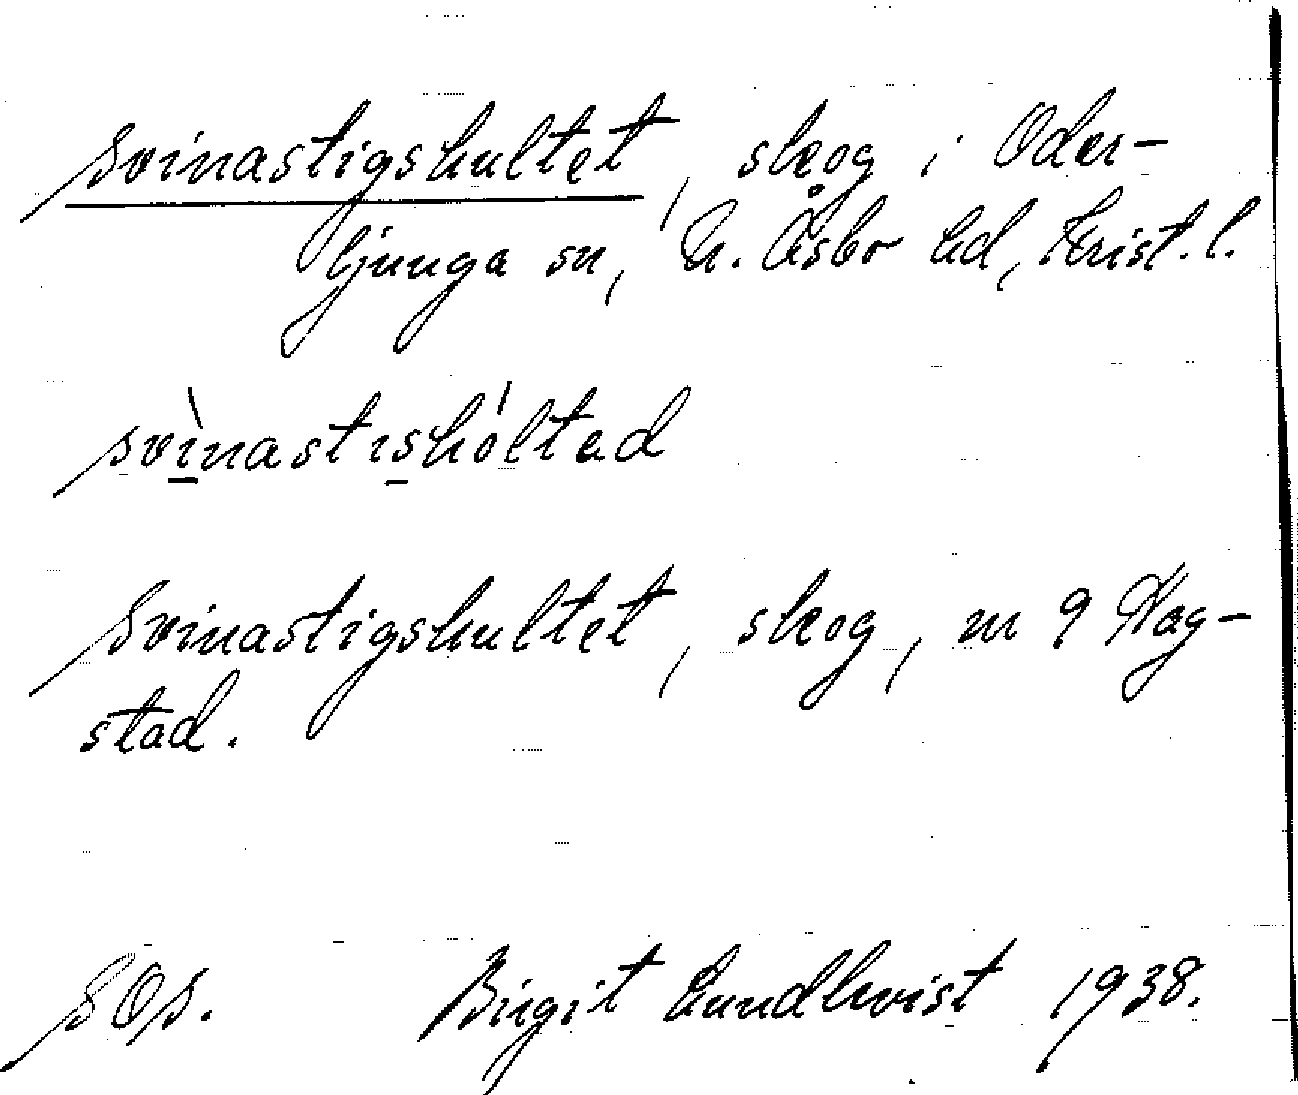 Svinastigshultet, skog i Oder-
ljunga sn, N. Åsbo hd, Krist. l.
svìnastıshóltad
Svinastigshultet, skog, nr 9 Hag-
stad.
SOS. Birgit Lundkvist 1938.